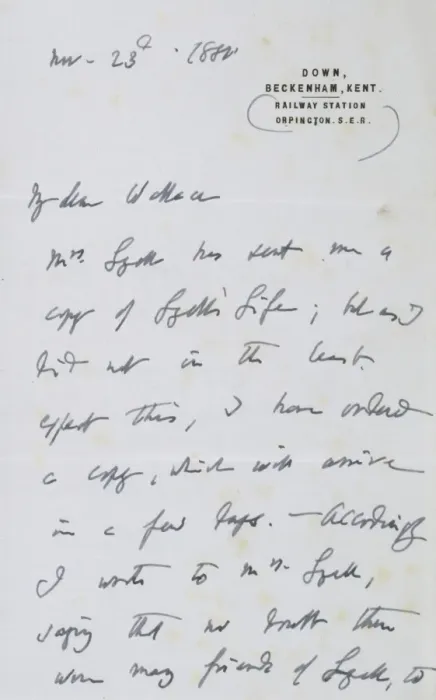 Nov. 23d 188
DOWN,
BECKENHAM, KENT.
RAILWAY STATION
ORPINGTON. S.E.R.
My dear Wallace
Mrs. Lyell has sent me a
copy of Lyell's Life; but as I
did not in the least
expect this, I have ordered
a copy, which will arrive
in a few days. — Accordingly
I wrote to Mrs. Lyell,
saying that no doubt there
were many friends of Lyell, to